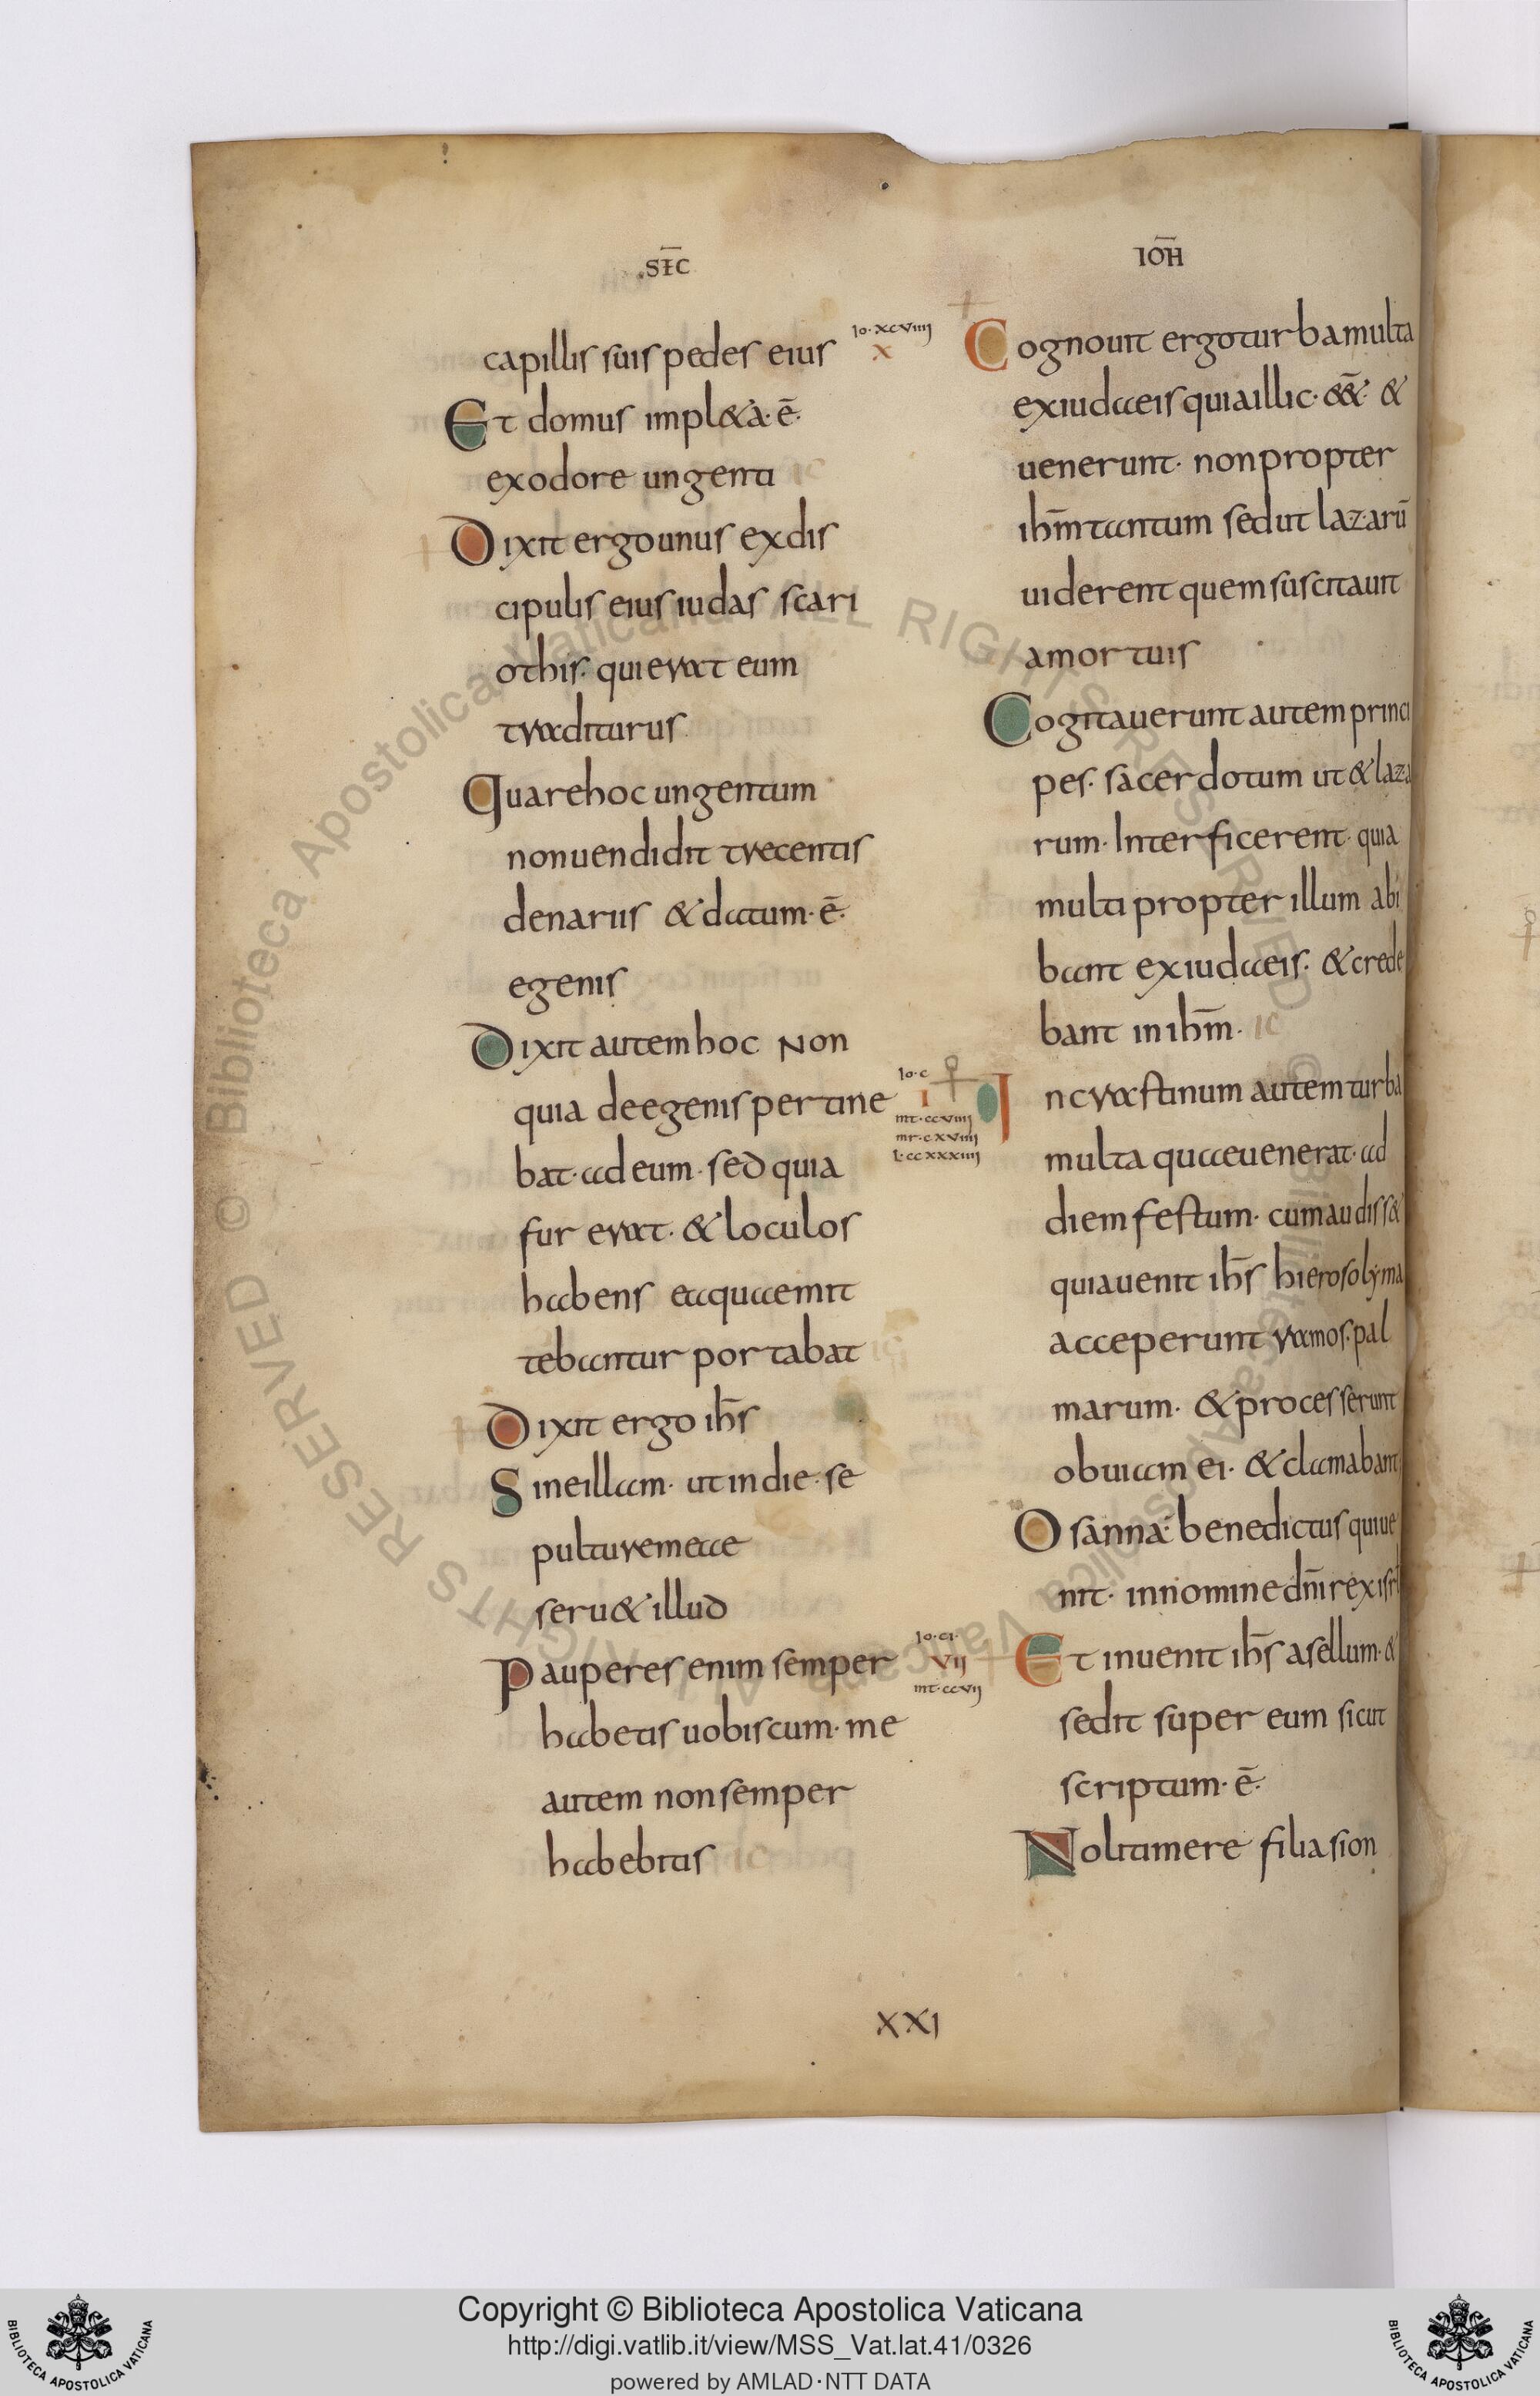 SEC̅
IOH̅
capillis suis pedes eius
Et domus impl&a· ē·
ex odore ungenti
Dixit ergo unus ex dis
cipulis eius iudas scari
othis· qui erat eum
traditurus
Quare hoc ungentum
non uendidit trecentis
denariis & datum· ē·
egenis
Dixit autem hoc Non
quia de egenis pertine
bat· ad eum· sed quia
fur erat· & loculos
habens ea quae mit
tebantur portabat
Dixit ergo ih̅s
Sine illam· ut in die· se
pulturemeae
seru& illud
Pauperes enim semper
habetis uobiscum· me
autem non semper
habebitis
Io·xcviiii
x
Cognouit ergo turba multa
ex iudaeis quia illic· &&̄· &
uenerunt· non propter
ih̅m tantum sed ut lazarū
uiderent quem suscitauit
amortuis
Cogitauerunt autem princi
pes· sacerdotum ut & laza
rum· Interficerent· quia
multi propter illum abi
bant ex iudaeis· & crede
bant in ih̅m·
Io·c
I
mt·ccviiii
mr·cxviiii
l·ccxxxiiii
In crastinum autem turba
multa quae uenerat· ad
diem festum· cum audiss&
quia uenit ih̅s hierosolyma
acceperunt ramos· pal
marum· & processerunt
obuiam ei· & clamabant
Osanna· benedictus qui ue
nit· in nomine dn̅i rex isrl
Io·ci·
VII
mt·ccvii
Et inuenit ih̅s asellum· &
sedit super eum sicut
scriptum· ē·
Noli timere filia sion
XXI
Copyright © Biblioteca Apostolica Vaticana
http://digi.vatlib.it/view/MSS_Vat.lat.41/0326
powered by AMLAD·NTT DATA
BIBLIOTECA APOSTOLICA VATICANA
BIBLIOTECA APOSTOLICA VATICANA